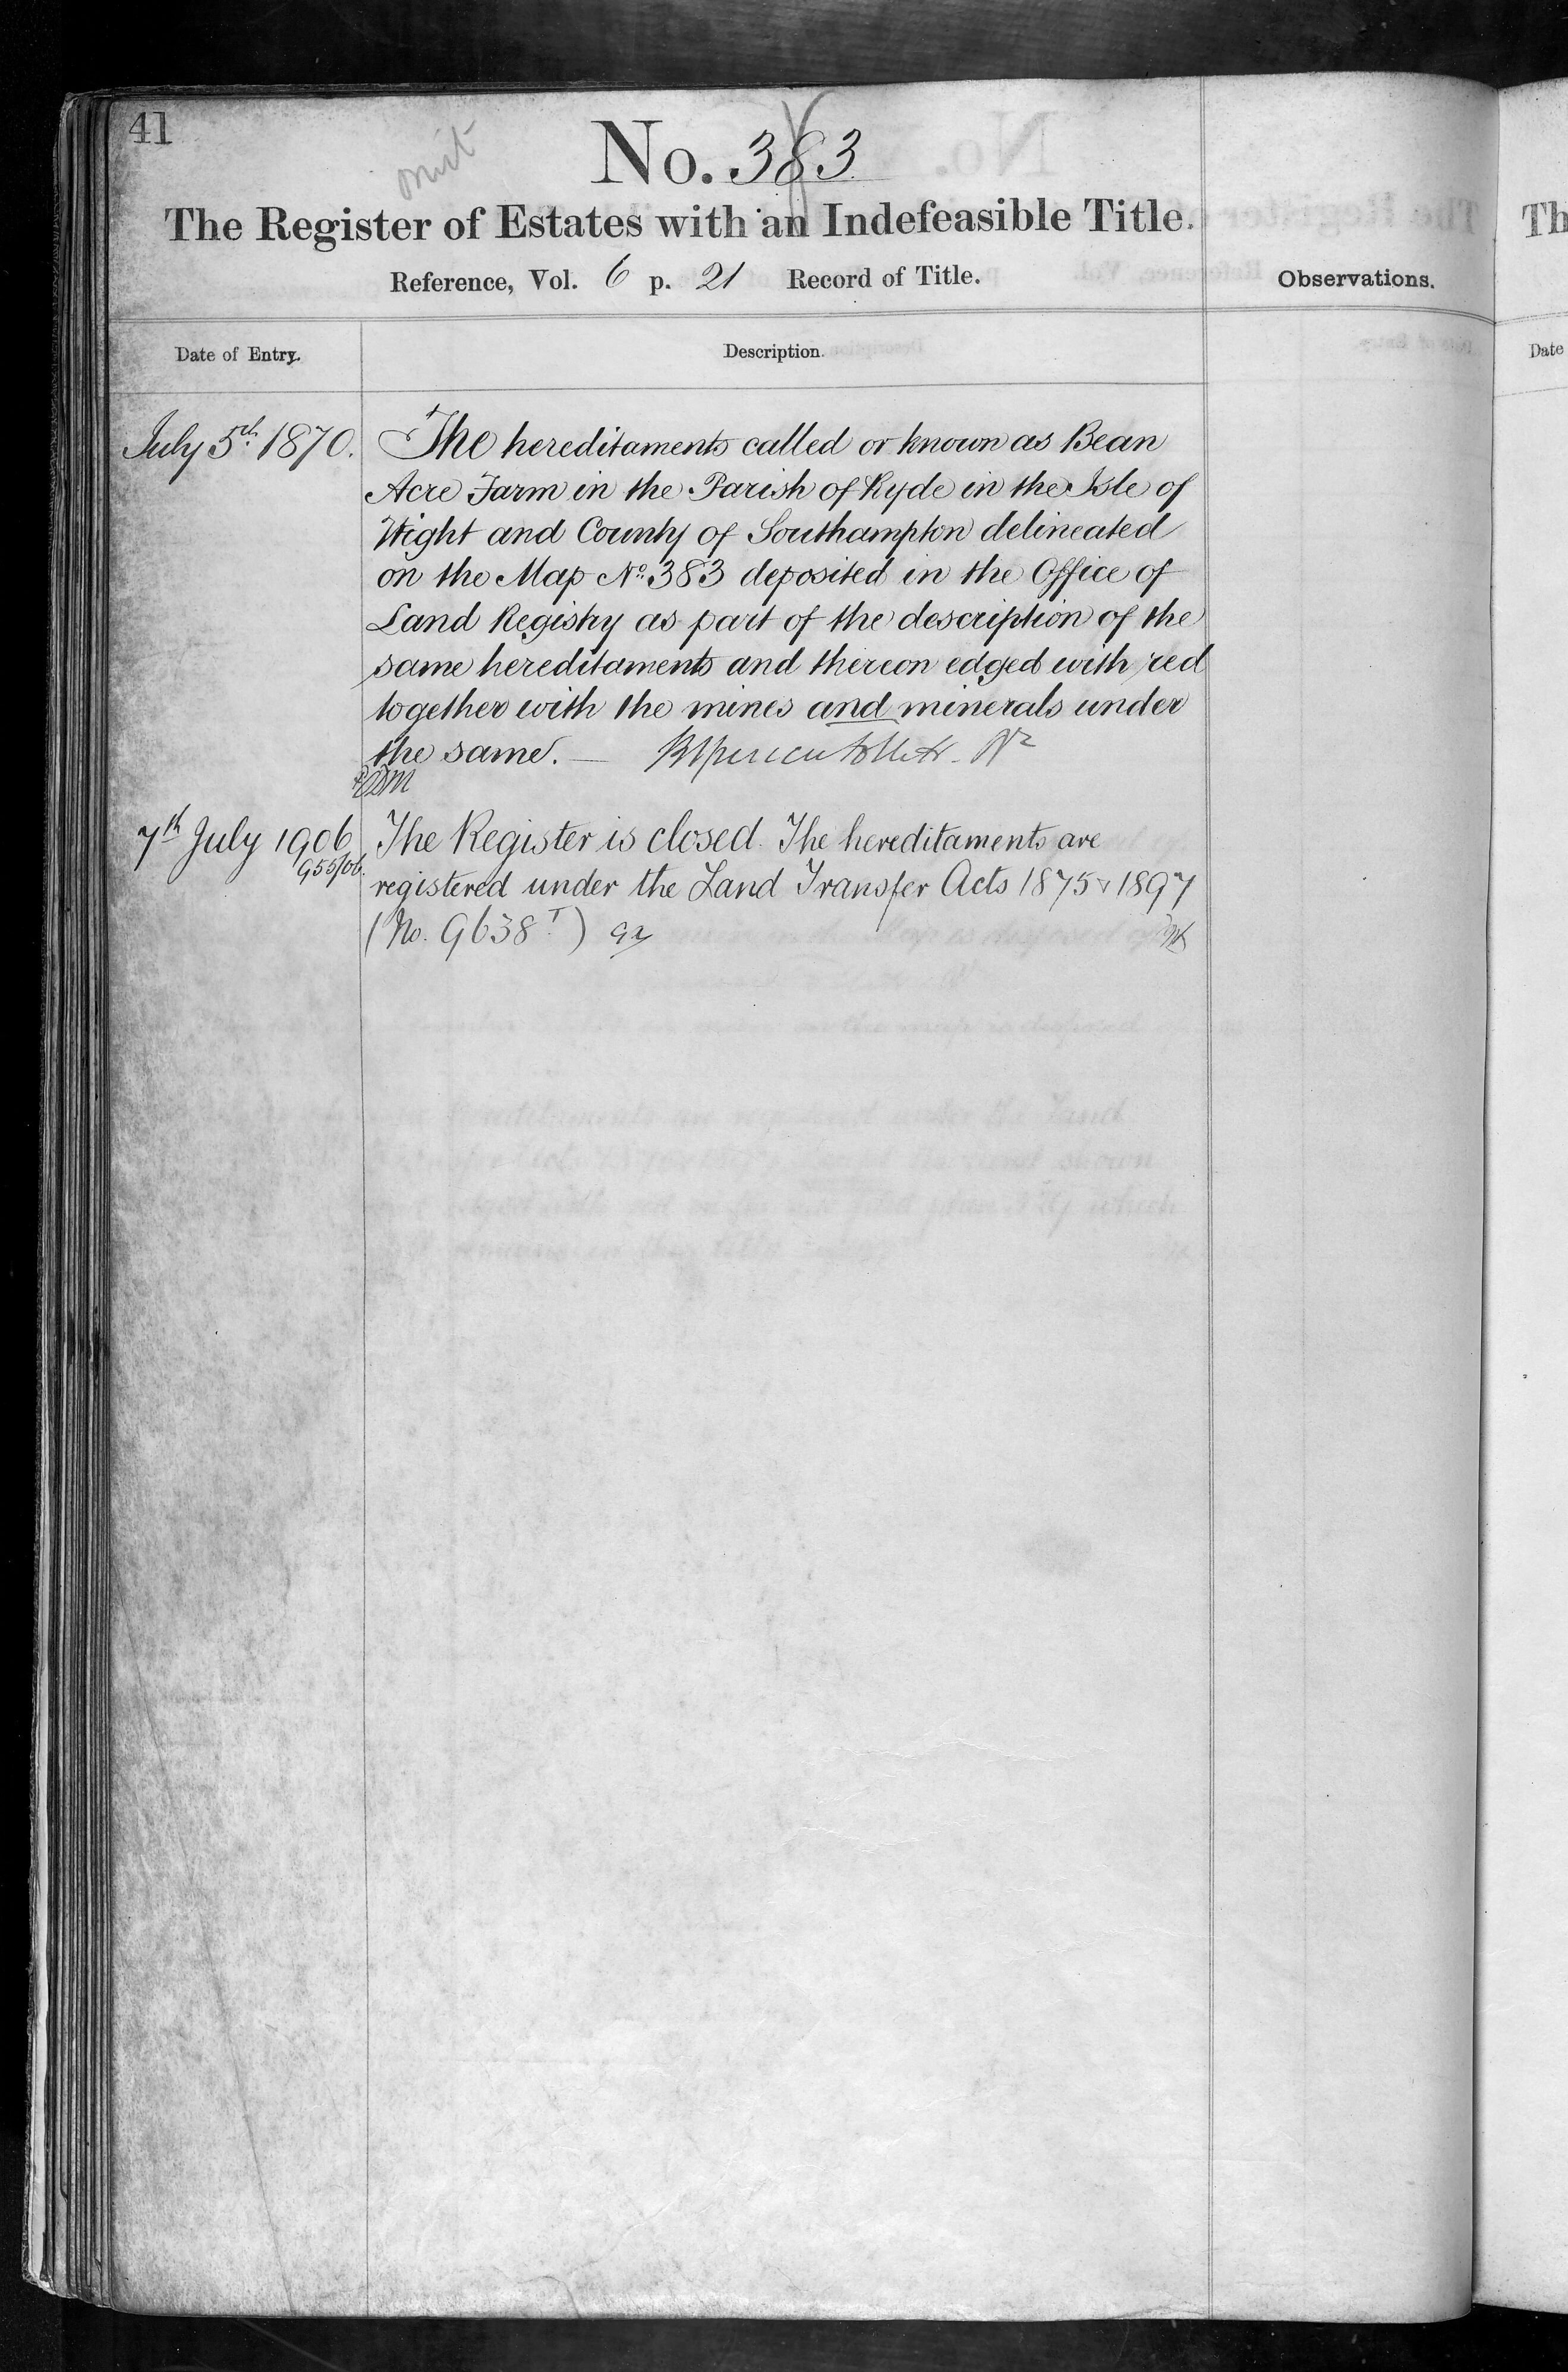 41
omit
No. 383
The Register of Estates with an Indefeasible Title.
Reference, Vol. 6 p. 21 Record of Title.
Observations.
Date of Entry.
Description.
July 5th 1870.
The hereditaments called or known as Bean
Acre Farm in the Parish of Ryde in the Isle of
Wight and County of Southampton delineated
on the Map No. 383 deposited in the Office of
Land Registry as part of the description of the
same hereditaments and thereon edged with red
together with the mines and minerals under
the same. —
7th July 1906
955/06.
The Register is closed. The hereditaments are
registered under the Land Transfer Acts 1875 & 1897
(No. 9638 T)
Th
Date